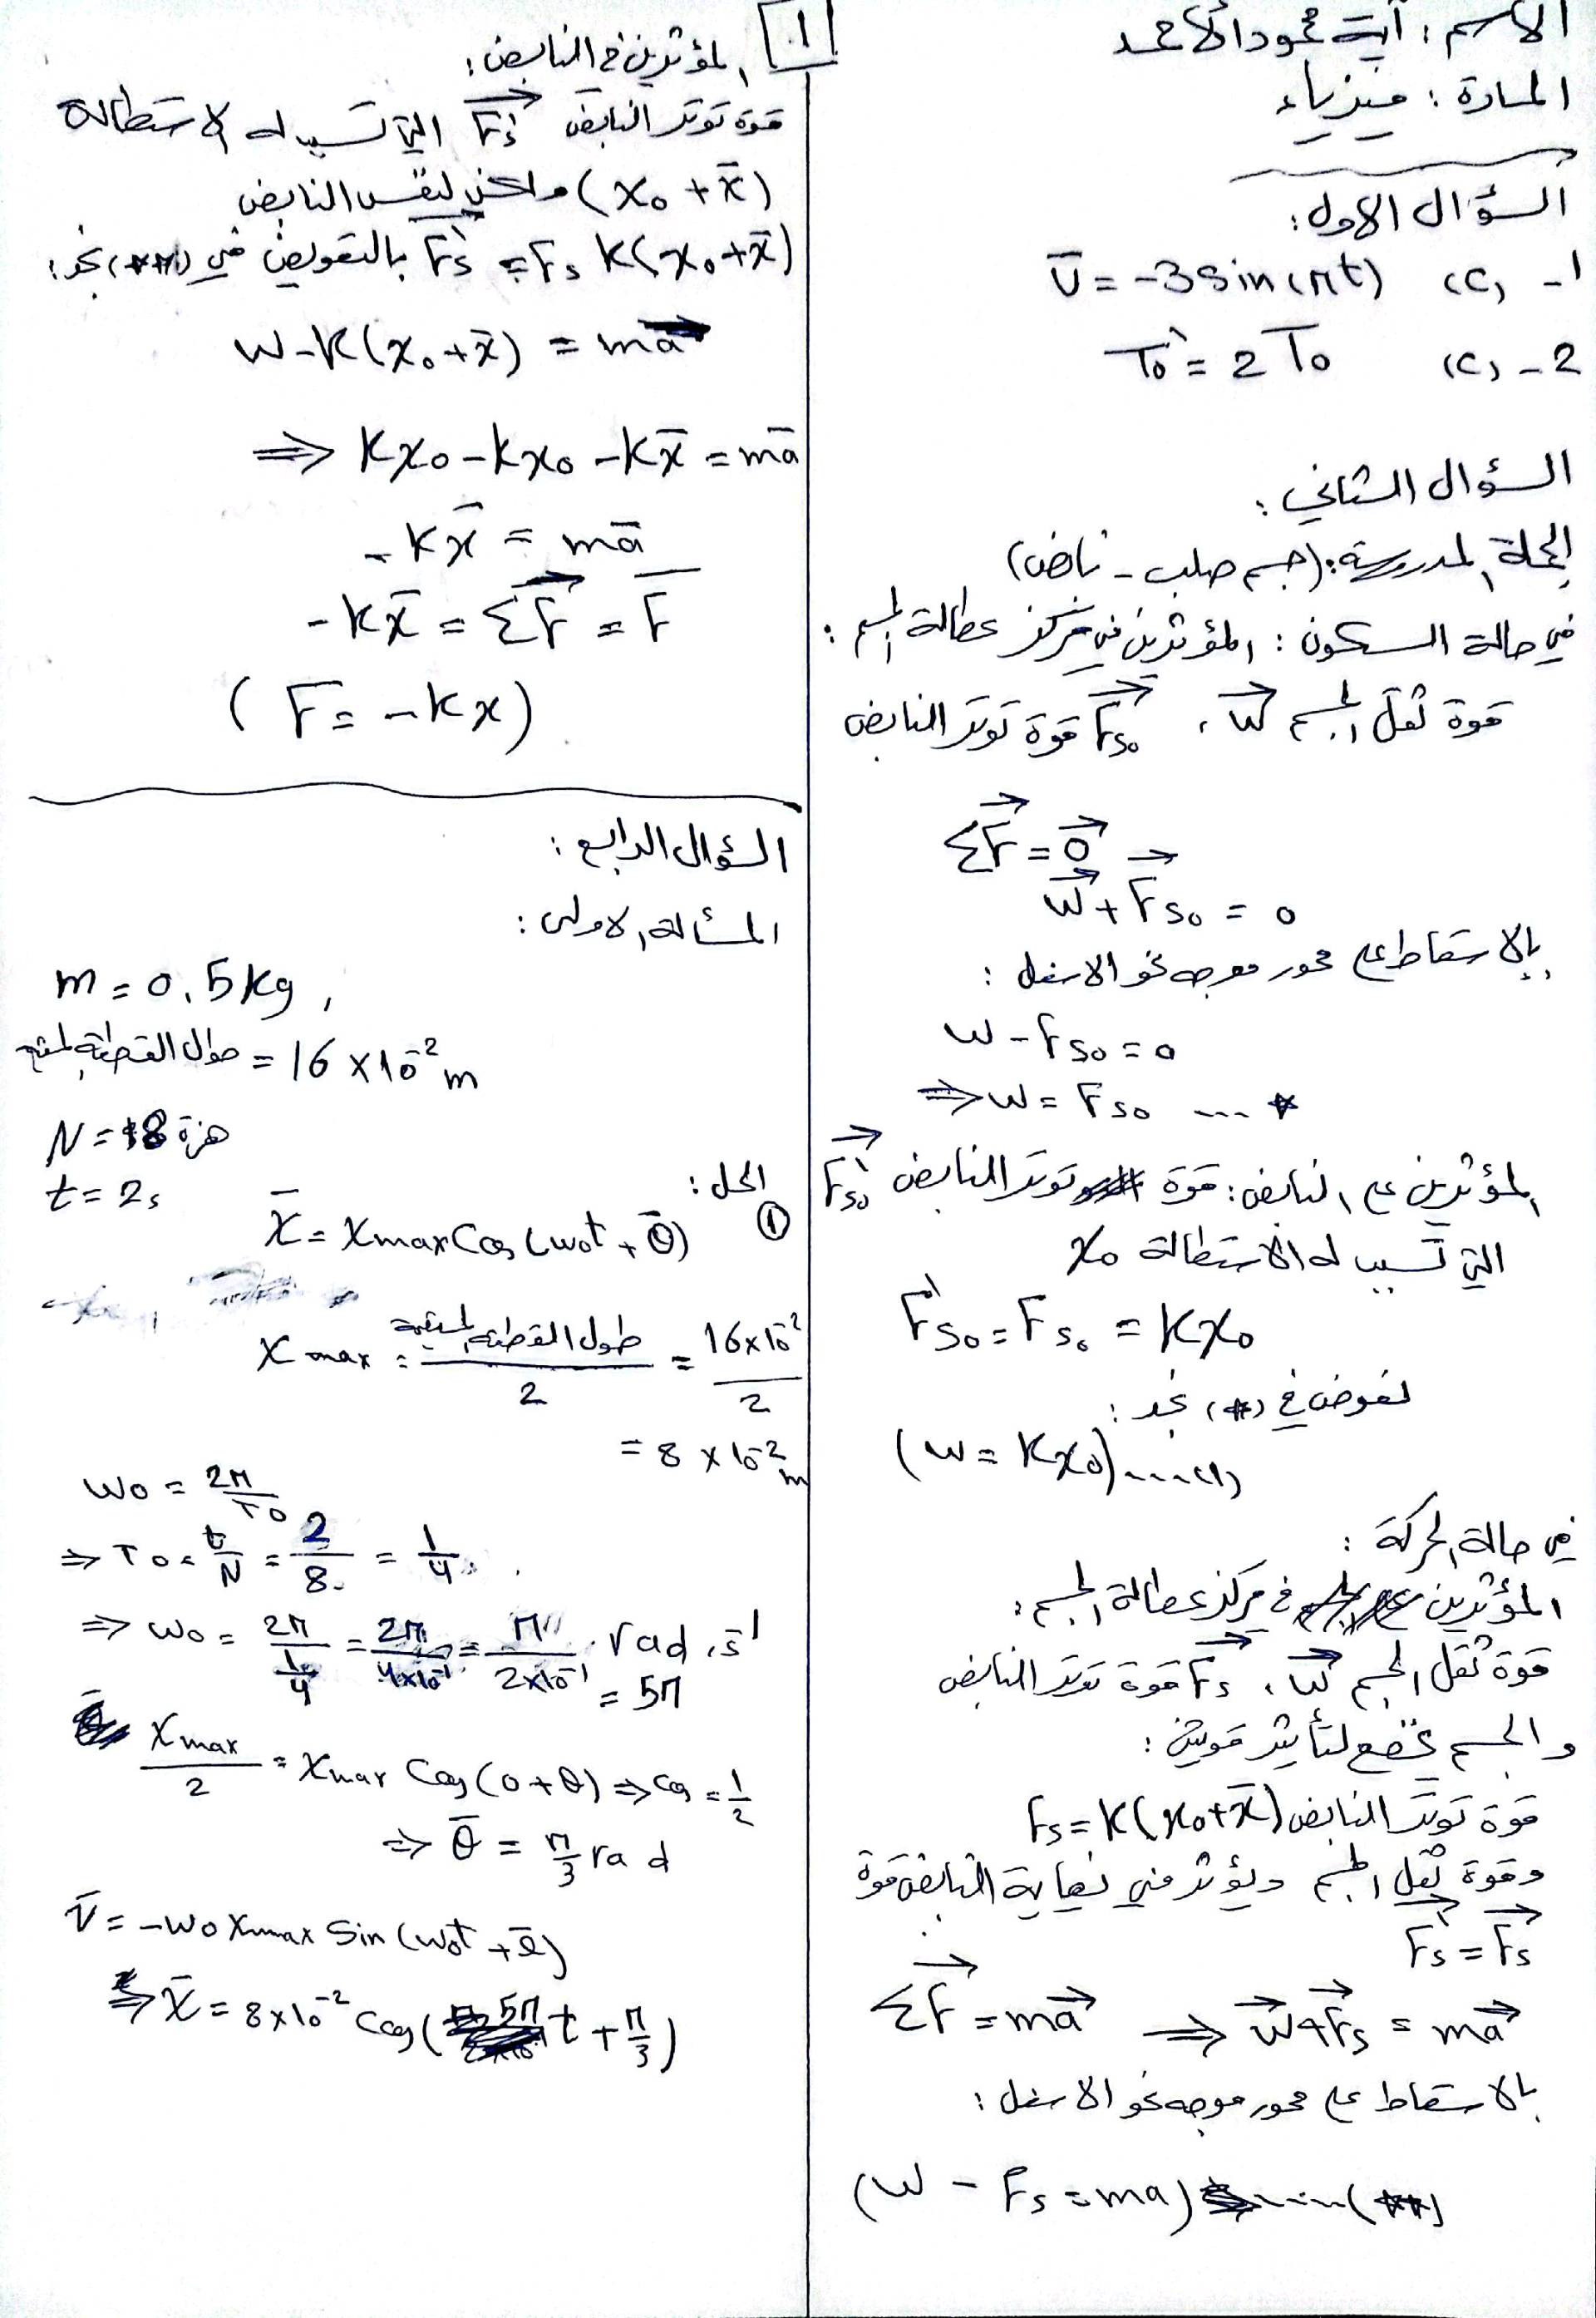 الاسم: آية محمود الأحمد
المادة: فيزياء
السؤال الاول:
1- (c) v̄ = -3 sin(πt)
2- (c) T₀' = 2 T₀
السؤال الثاني:
الجملة المدروسة: (جسم صلب - نابض)
في حالة السكون: المؤثرين في مركز عطالة الجسم:
قوة ثقل الجسم W⃗ ، F⃗s₀ قوة توتر النابض
ΣF⃗ = 0⃗
W⃗ + F⃗s₀ = 0
بالاسقاط على محور موجه نحو الاسفل:
W - Fs₀ = 0
⇒ W = Fs₀ ... *
المؤثرين على النابض: قوة توتر النابض F⃗'s₀
التي تسبب له الاستطالة x₀
F's₀ = Fs₀ = Kx₀
نعوض في (*) نجد:
(W = Kx₀) .... (1)
في حالة الحركة:
المؤثرين في مركز عطالة الجسم:
قوة ثقل الجسم W⃗ ، F⃗s قوة توتر النابض
والجسم يخضع لتأثير قوتين:
قوة توتر النابض Fs = K(x₀+x̄)
وقوة ثقل الجسم ويؤثر في نهاية النابض قوة
F⃗'s = F⃗s
ΣF⃗ = ma⃗ ⇒ W⃗ + F⃗s = ma⃗
بالاسقاط على محور موجه نحو الاسفل:
(W - Fs = ma) .... (**)
1.
المؤثرين في النابض:
قوة توتر النابض F⃗'s التي تسبب له الاستطالة
(x₀ + x̄) لنفس النابض
F's = Fs K(x₀+x̄) بالتعويض في (**) نجد:
W - K(x₀+x̄) = ma
⇒ Kx₀ - kx₀ - kx̄ = mā
-kx̄ = mā
-kx̄ = ΣF⃗ = F̄
(F = -kx)
السؤال الرابع:
المسألة الاولى:
m = 0.5 kg,
طول القطعة المستقيمة = 16 × 10⁻² m
N = 8 هزة
t = 2s
الحل:
① x̄ = Xmax Cos(ω₀t + θ̄)
Xmax = طول القطعة المستقيمة / 2 = 16×10⁻² / 2
= 8 × 10⁻² m
ω₀ = 2π / T₀
⇒ T₀ = t/N = 2/8 = 1/4
⇒ ω₀ = 2π / (1/4) = 2π / 4×10⁻¹ = π / 2×10⁻¹ rad.s⁻¹
= 5π
Xmax / 2 = Xmax Cos(0 + θ) ⇒ cos = 1/2
⇒ θ̄ = π/3 rad
v̄ = -ω₀ Xmax Sin(ω₀t + θ̄)
⇒ x̄ = 8×10⁻² Cos(5π t + π/3)